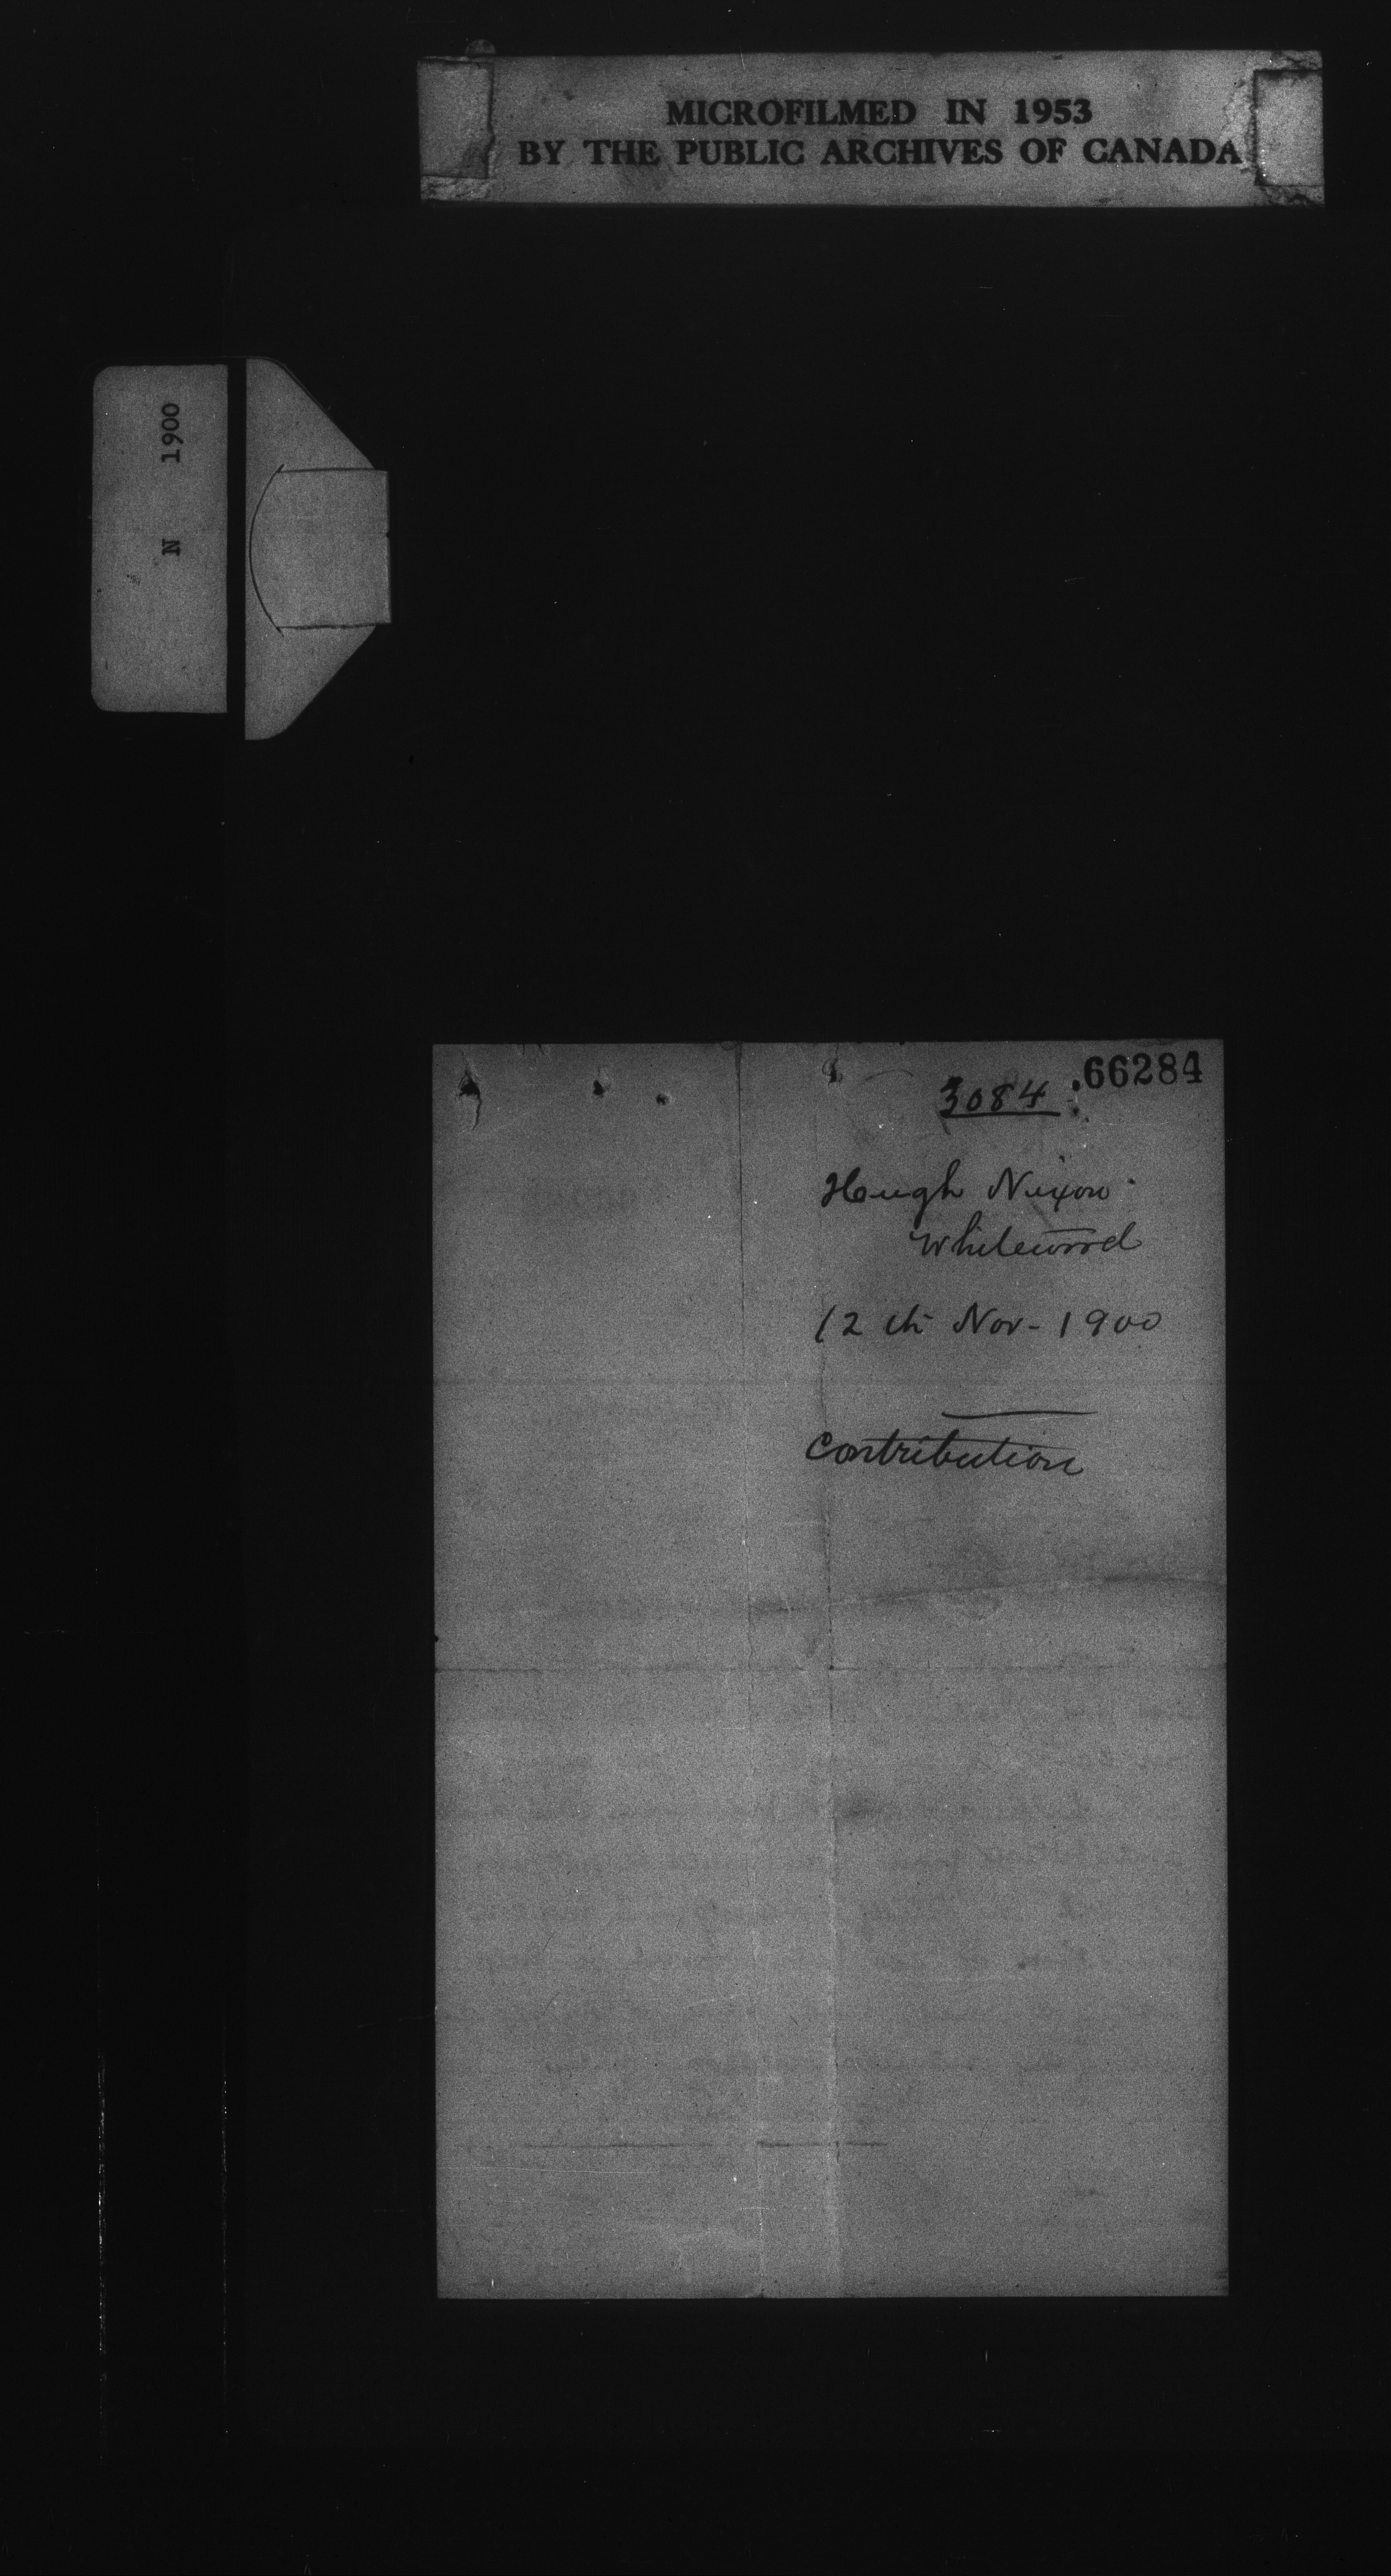 MICROFILMED IN 1953
BY THE PUBLIC ARCHIVES OF CANADA
N 1900
66284
3084
Hugh Nixon
Whitewood
12th Nov-1900
Contribution